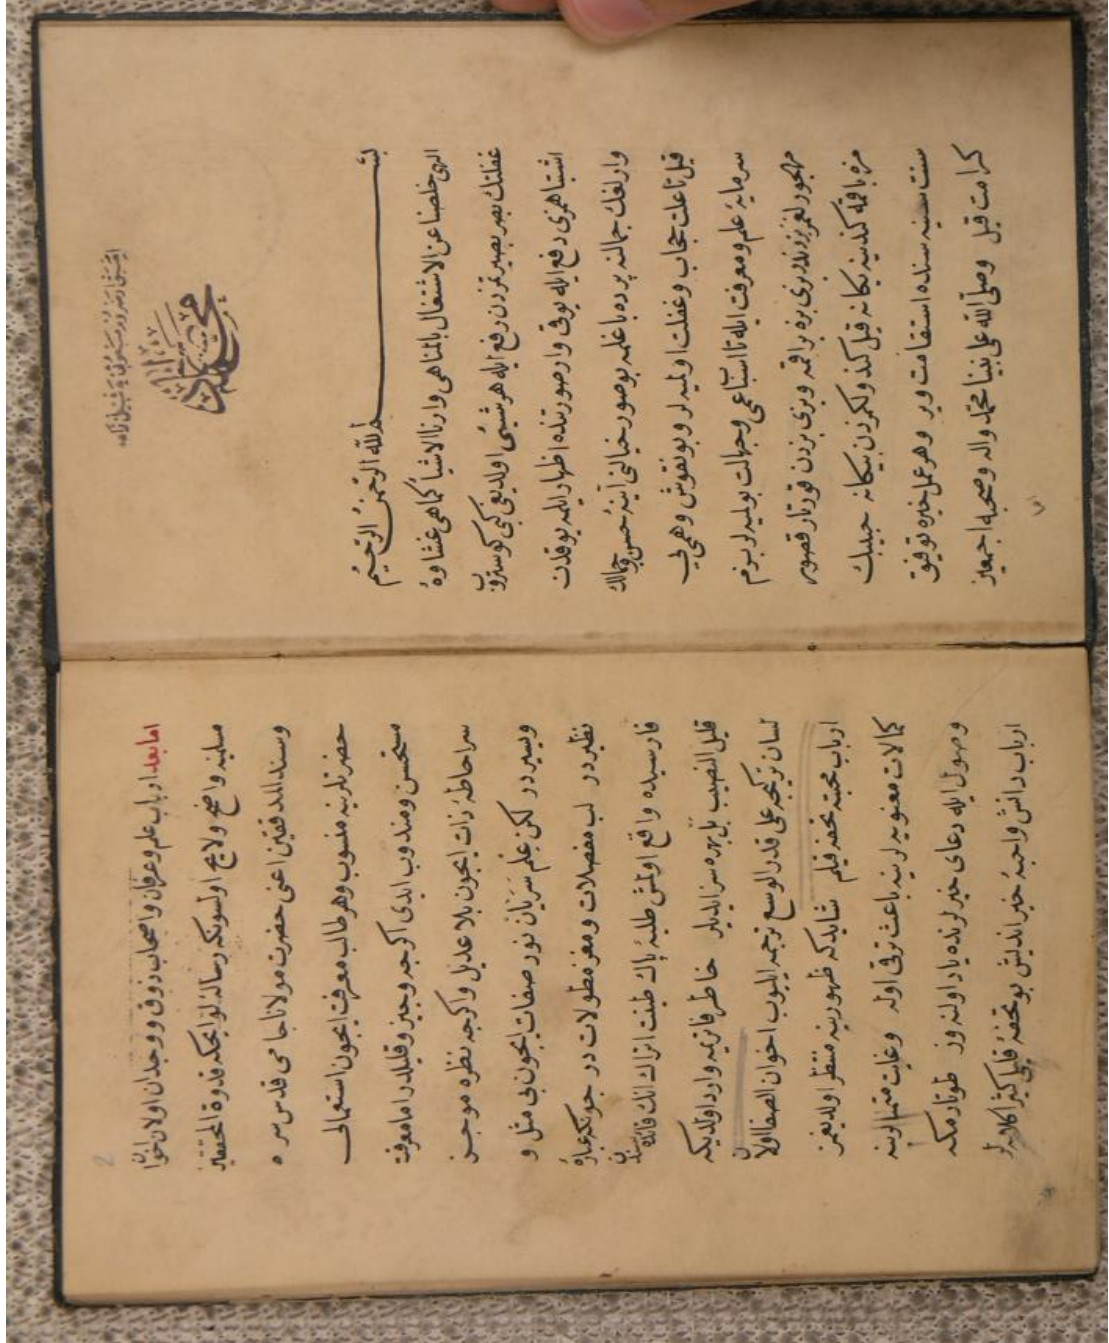 بسم الله الرحمن الرحيم
الهى خلصنا عن الاشتغال بالمناهى وارنا الاشيا كما هى غشاوهٔ
غفلتك بصر بصيرتمزدن رفع ايله هر شيئى اولديغى كبى كوستر
اشتباهمزى دفع ايله يوقى وار صورتنده اظهار ايلمه يوقدن
وارلغك جمالنه پرده باغلمه بو صور خيالى آينهٔ حسن وجمالك
قيل تا علت حجاب وغفلت اولميه لر وبو نقوش وهمى
سرمايهٔ علم ومعرفت ايله تا اسباب عمى وجهالت بولميه لر بزم
مهجورلغمز بزدندر بزى بزه براقمه وبزى بزدن قورتار قصورمزه
مزه باقمه كندينه يكانه قيل كندولكمزدن بيكانه حبيبك
سنت سنيه سنده استقامت وير وهر عمل خيره توفيق
كرامت قيل وصلى الله على نبينا محمد واله وصحبه اجمعين
اما بعد ارباب علم وعرفان واصحاب ذوق ووجدان اولان اخوان
مسلمينه واضح ولايح اولسونكه رساله لوايحكه قدوة المحققين
وسند المدققين اعنى حضرت مولانا جامى قدس سره
حضرتلرينه منسوب وهر طالب معرفت ايچون استعمالى
مستحسن ومندوب ايدى اكرچه وجيز وقليلدر اما معرفت
سر احاطهٔ ذات ايچون بلا عديل واكرچه نظره موجز
ويسيردر لكن علم سريان نور صفات ايچون بى مثل و
نظيردر لب مفصلات ومغز مطولات در چونكه عبارهٔ
فارسيده واقع اولمش طلبهٔ پاك طينت اتراك انك فائده سندن
قليل النصيب بل بهره سز ايديلر خاطر فاتريمه وارد اولديكه
لسان تركيجه على قدر الوسع ترجمه ايليوب اخوان الصفا اولان
ارباب محبته تحفه قيلم شايد كه ظهورينه منتظر اولديغمز
كمالات معنويه لرينه باعث ترقى اوله وغايت متمنالرينه
وصول ايله دعاى خير لرنده ياد اولنه وز طوتارمكه
ارباب دانش واحبهٔ خير انديش بو تحفهٔ قليل كثير